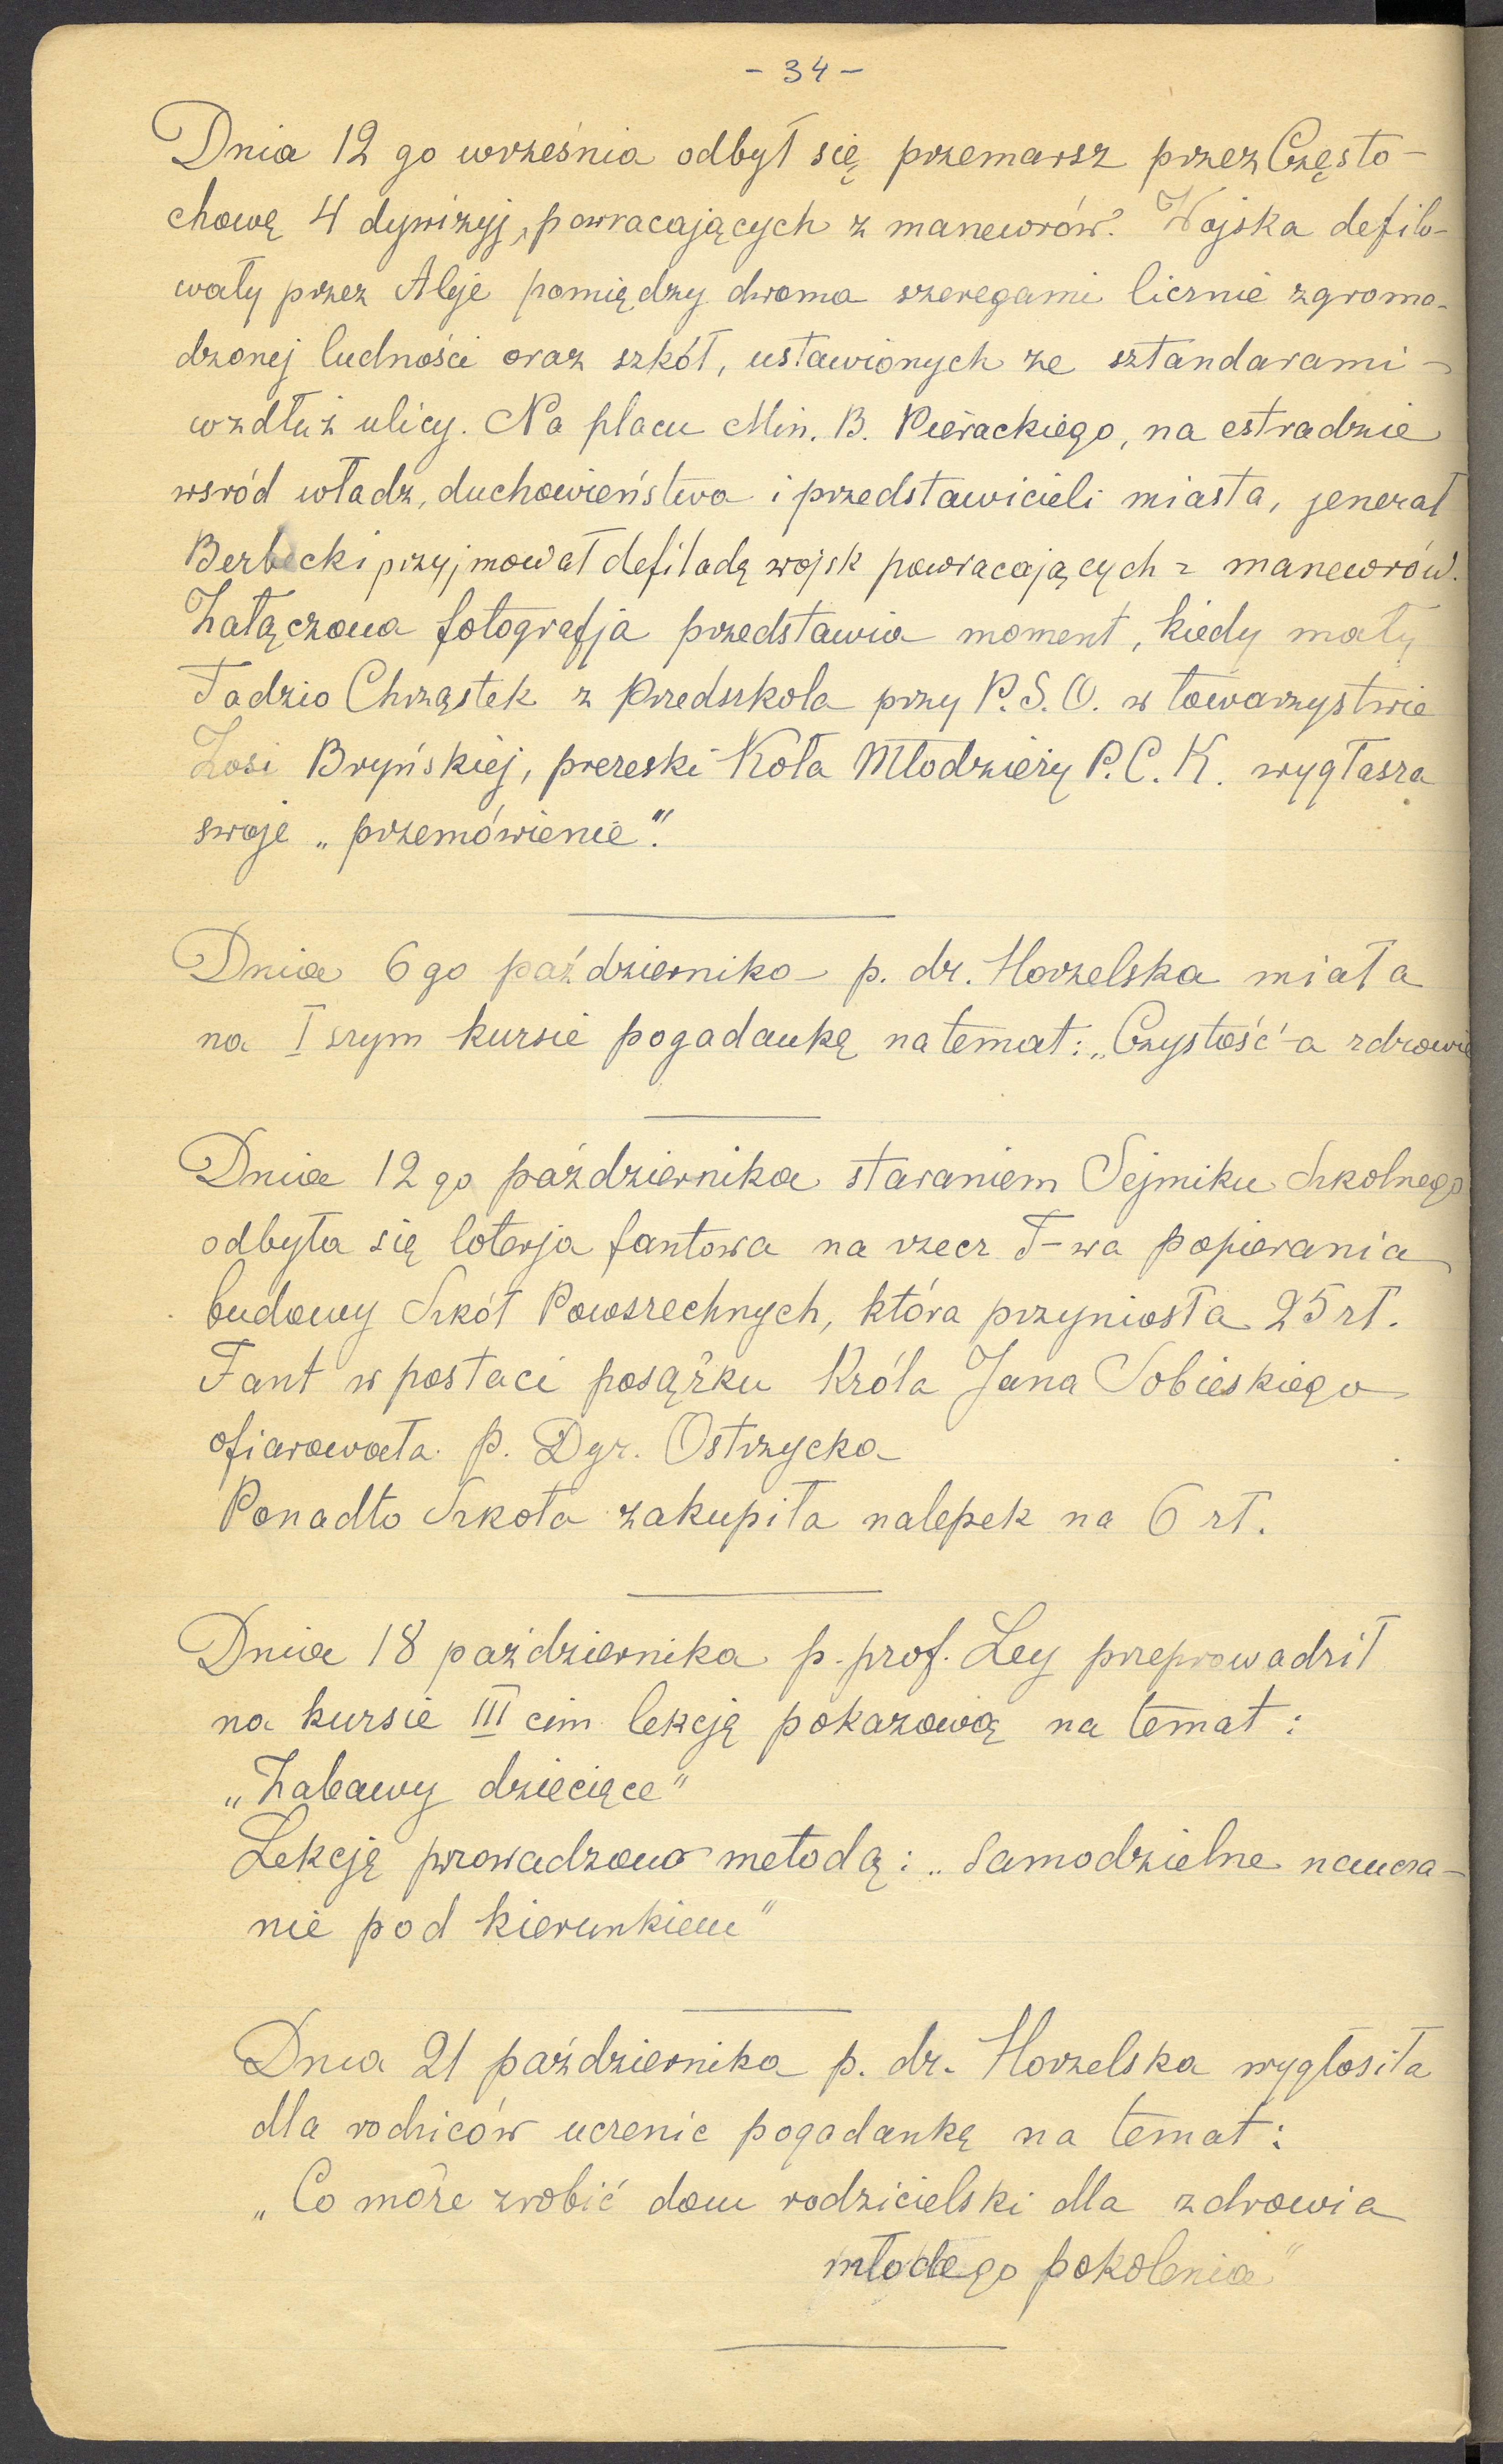 - 34 -
Dnia 12 go września odbył się przemarsz przez Często-
chowę 4 dywizyj, powracających z manewrów. Wojska defilo-
wały przez Aleje pomiędzy dwoma szeregami licznie zgroma-
dzonej ludności oraz szkół, ustawionych ze sztandarami -
wzdłuż ulicy. Na placu Min. B. Pierackiego, na estradzie
wsród władz, duchowieństwa i przedstawicieli miasta, jenerał
Berbecki przyjmował defiladę wojsk powracających z manewrów.
Załączona fotografja przedstawia moment, kiedy mały
Tadzio Chrząstek z Przedszkola przy P.S.O. w towarzystwie
Zosi Bryńskiej, prezeski Koła Młodzieży P.C.K. wygłasza
swoje „przemówienie".
Dnia 6 go października p. dr. Horzelska miała
na I szym kursie pogadankę na temat: „Czystość a zdrowie
Dnia 12 go października staraniem Sejmiku Szkolnego
odbyła się loterja fantowa na rzecz T-wa popierania
budowy Szkół Powszechnych, która przyniosła 25 zł.
Fant w postaci posążku Króla Jana Sobieskiego
ofiarowała p. Dyr. Ostrzycka
Ponadto Szkoła zakupiła nalepek na 6 zł.
Dnia 18 października p. prof. Ley przeprowadził
na kursie III cim lekcję pokazową na temat:
„Zabawy dziecięce"
Lekcję prowadzono metodą: „Samodzielne naucza-
nie pod kierunkiem"
Dnia 21 października p. dr. Horzelska wygłosiła
dla rodziców uczenic pogadankę na temat:
„Co może zrobić dom rodzicielski dla zdrowia
młodego pokolenia"